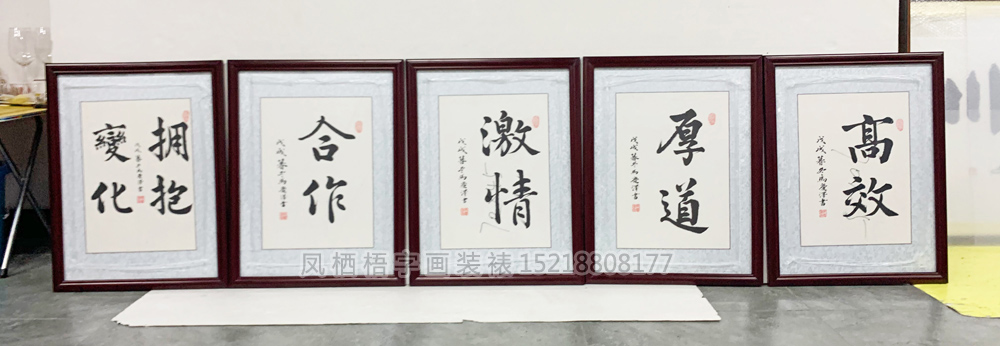 拥抱
變化
戊戌暮冬
合作
戊戌暮冬
激情
戊戌暮冬
厚道
戊戌暮冬
高效
戊戌暮冬
凤栖梧字画装裱 15218808177